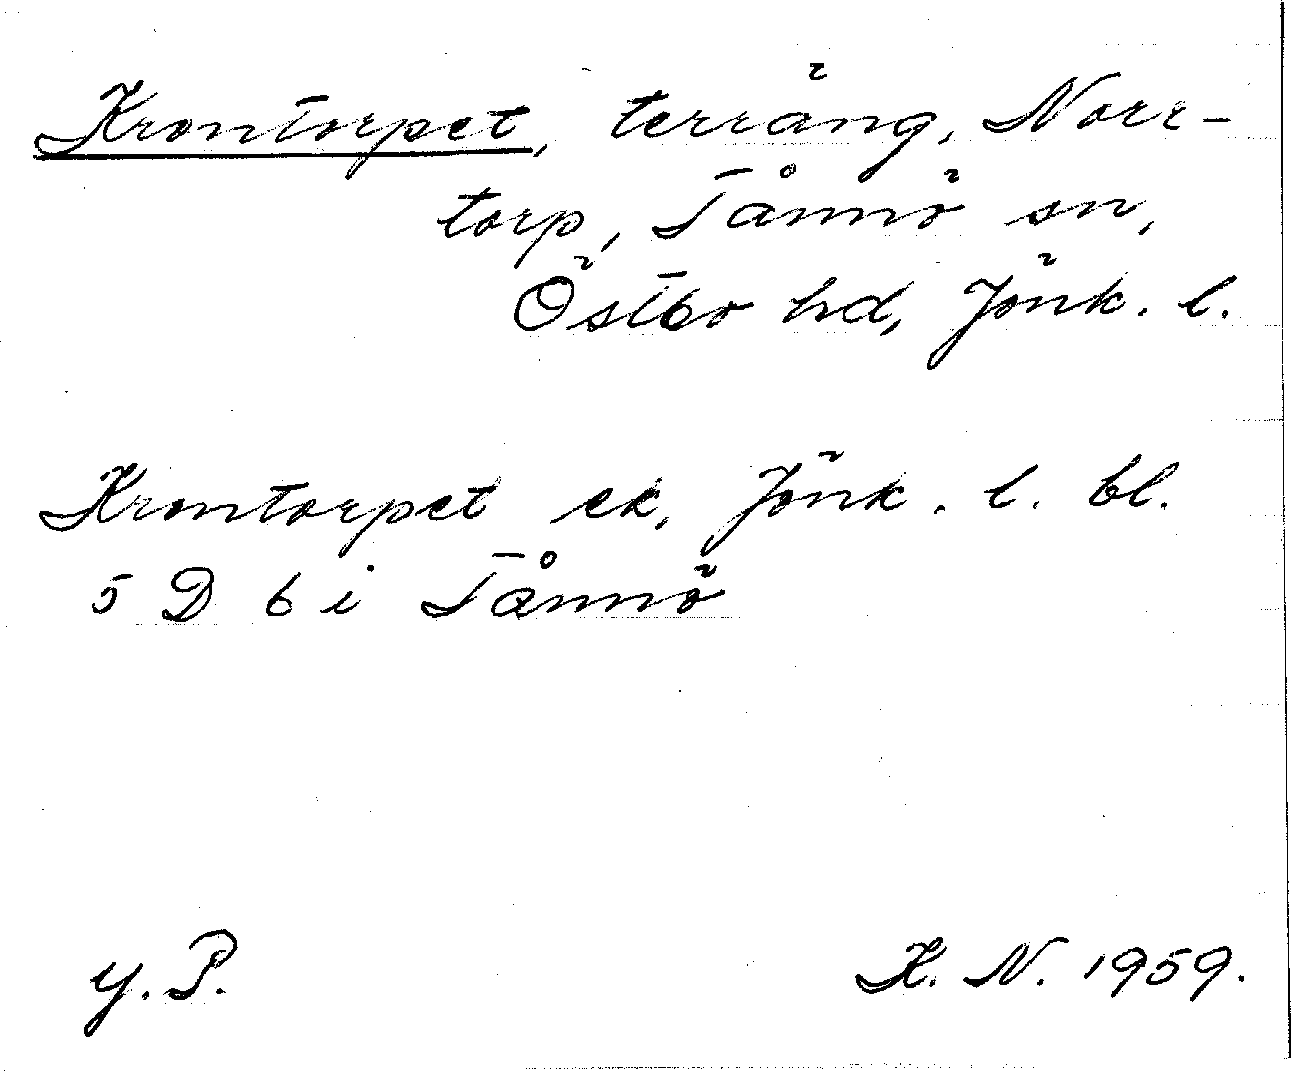 Krontorpet, terräng, Norr-
torp, Tånnö sn,
Östbo hd, Jönk. l.
Krontorpet ek, Jönk. l. bl.
5 D 6 i Tånnö
y. P. K. N. 1959.